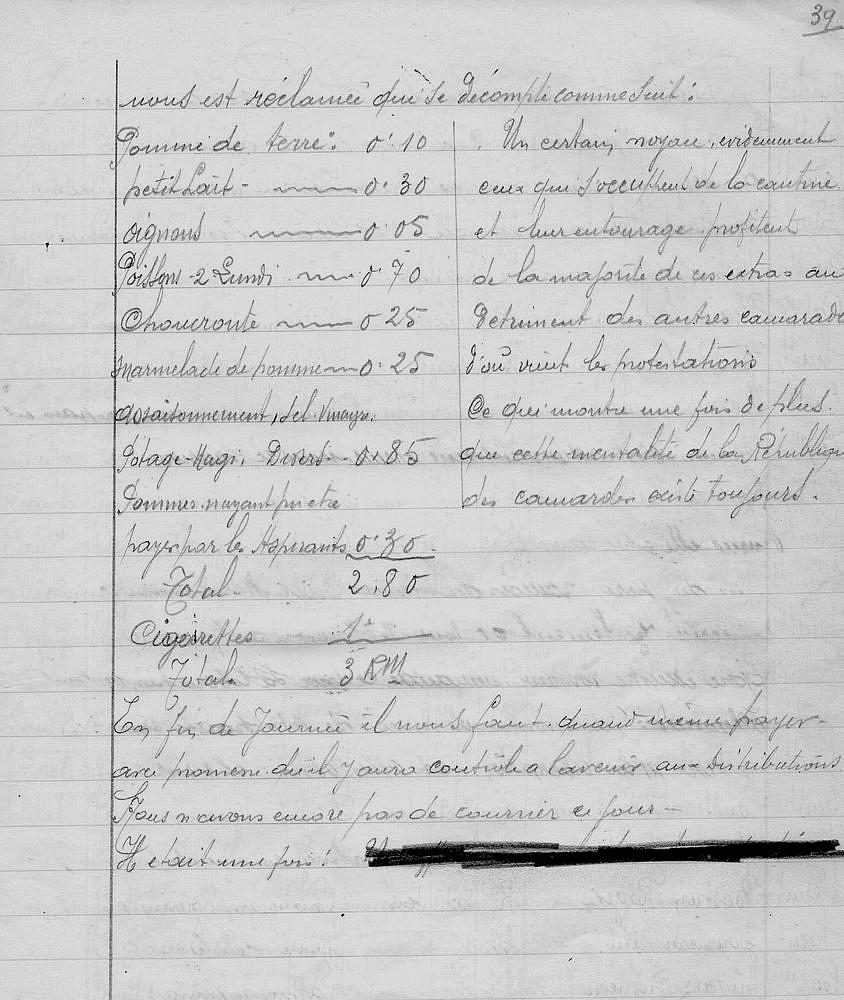 39
nous est réclamée qui se décompte comme suit :
Pomme de terre : 0.10
petit Lait - 0.30
oignons 0.05
Poissons - 2 Lundi 0.70
Choucroute 0 25
Marmelade de pomme 0.25
assaisonnement, sel. Vinaigre.
Potage - Magi. Divers - 0.85
Sommes n'ayant pu etre
payer par les Aspirants 0.30
Total 2.80
Cigarettes
Total 3 RM
. Un certain noyau, evidemment
ceux qui s'occuppent de la cantine
et leur entourage profitent
de la majorité de ces extras au
Detriment des autres camarade
d'où vient les protestations
Ce qui montre une fois de plus.
que cette mentalité de la République
des camarades existe toujours.
En fin de Journée il nous faut quand même payer -
avec promesse du'il y aura controle a l'avenir aux Distributions
Nous n'avons encore pas de courrier ce jour -
Il etait une fois !